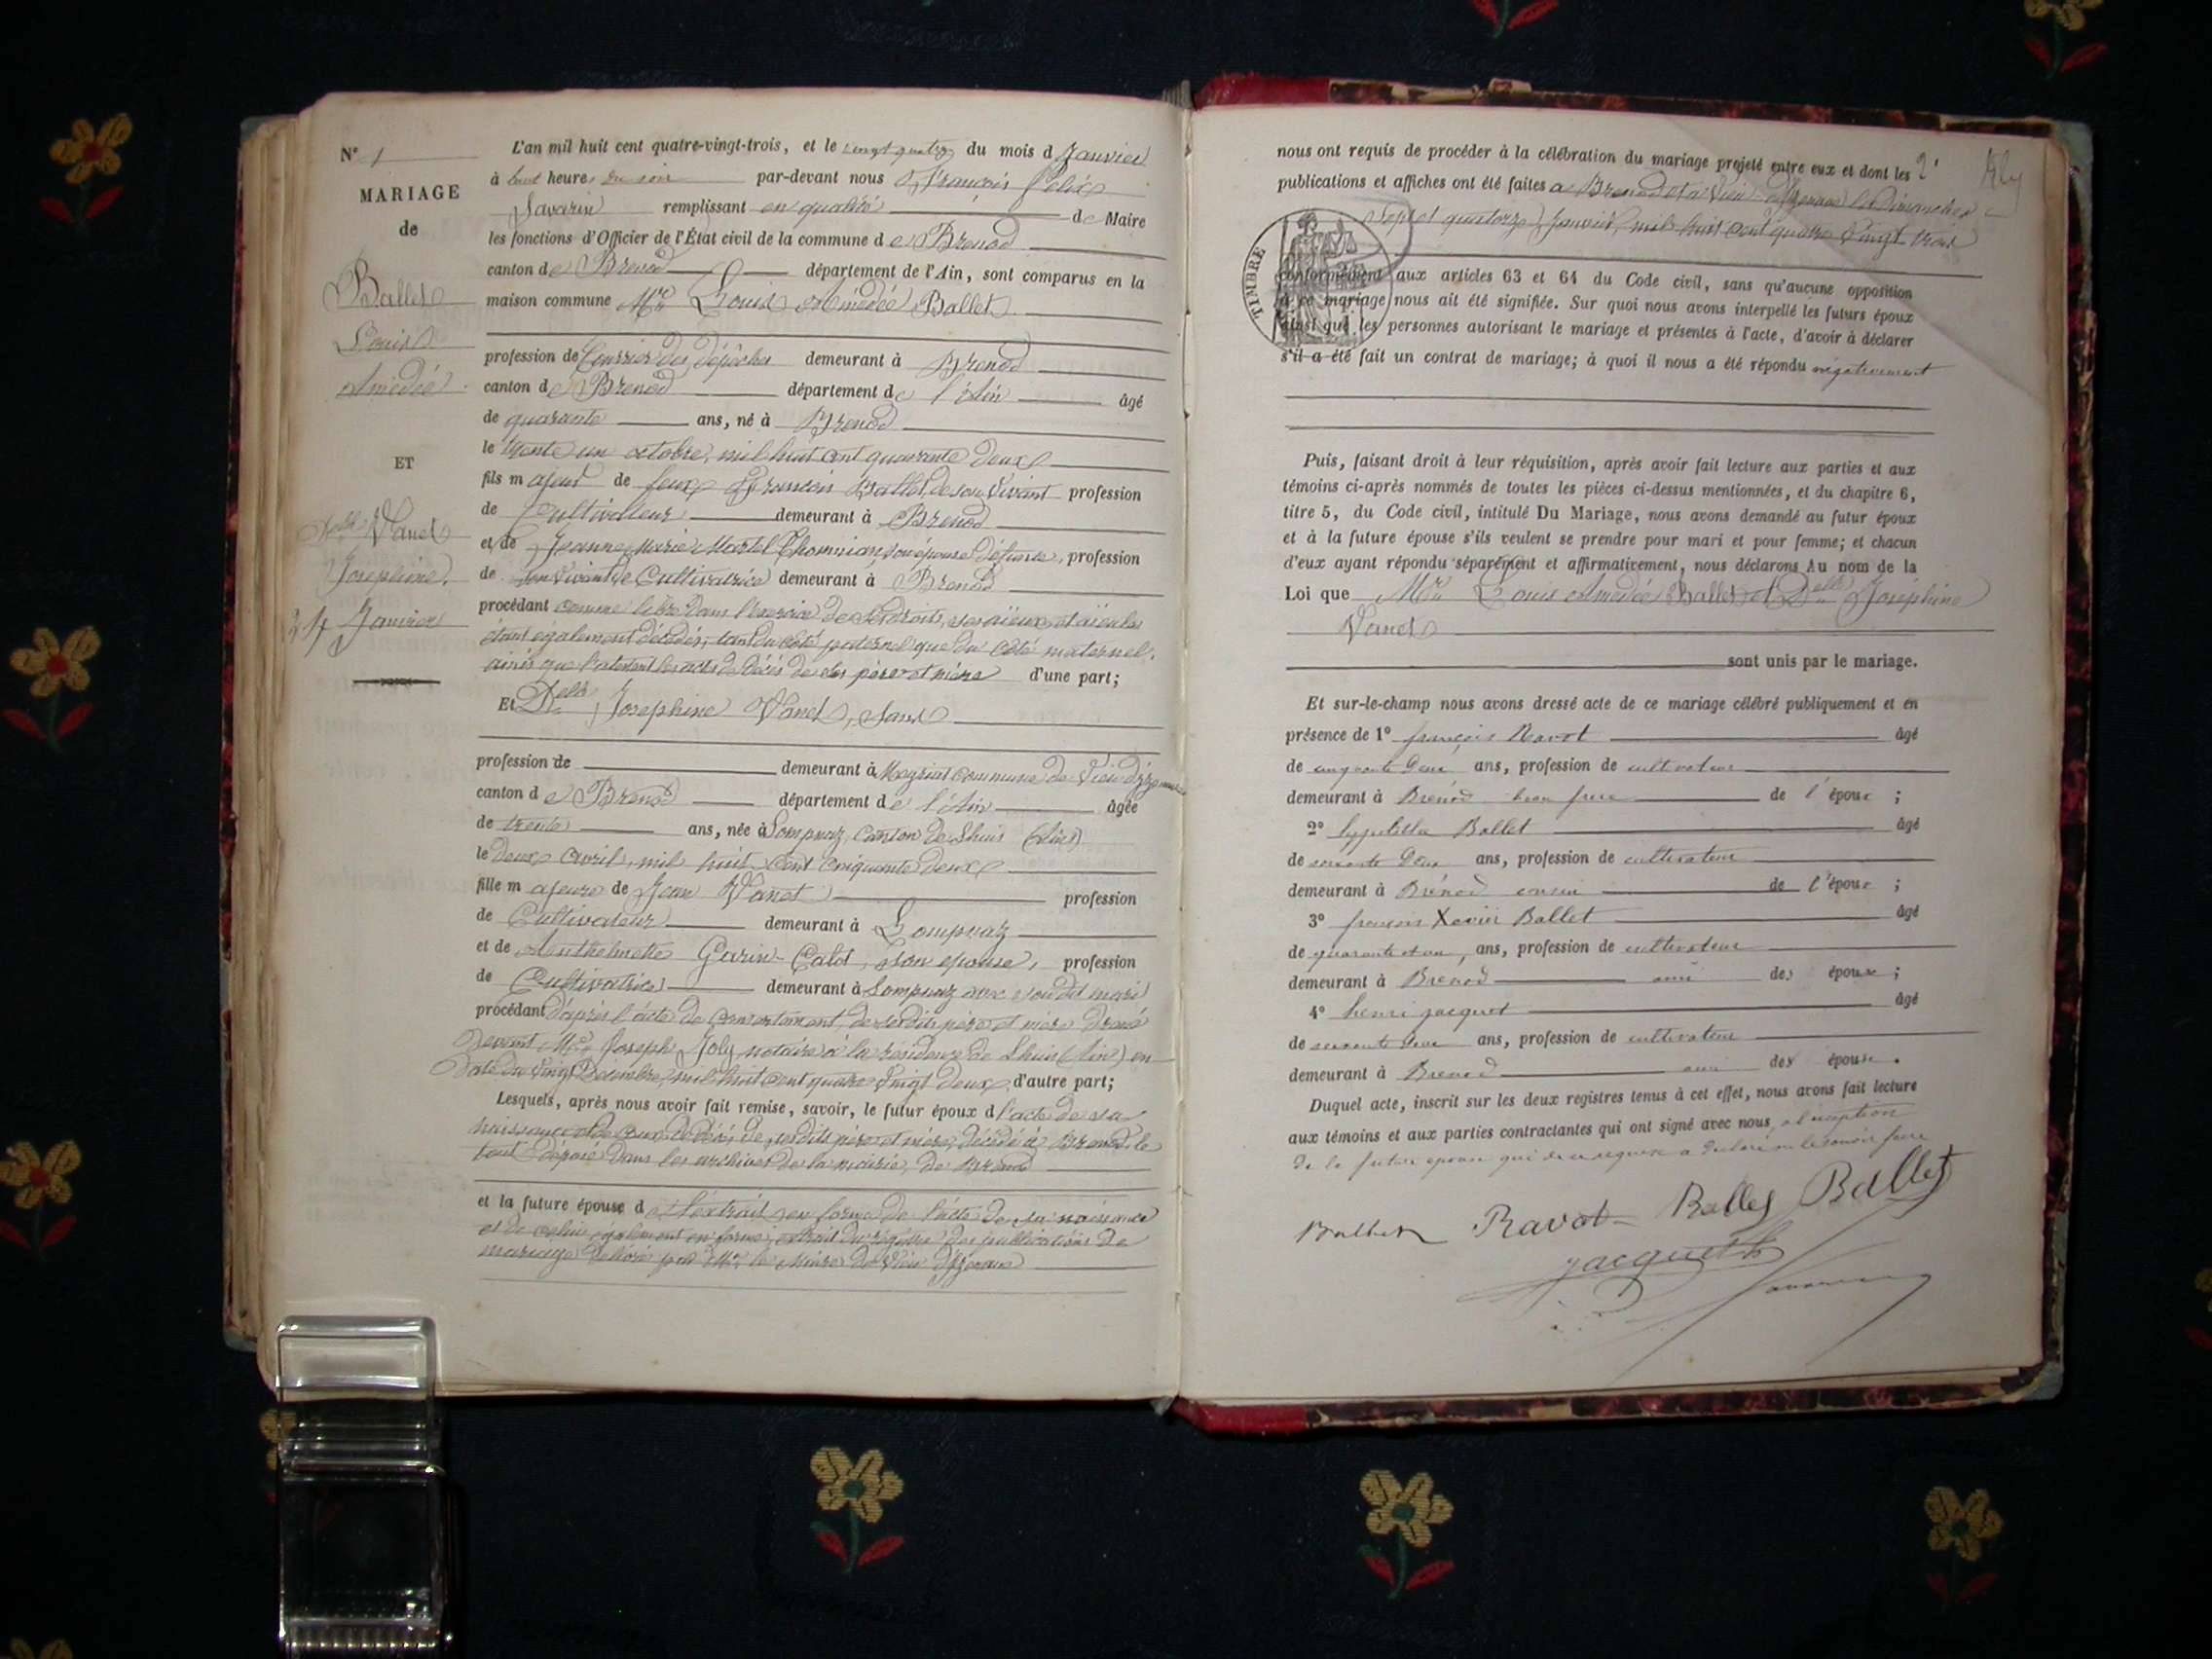 N° 1
MARIAGE
de
Ballet
Louis
Amédée
ET
Delle Vanet
Josephine
24 Janvier
L'an mil huit cent quatre-vingt-trois, et le vingt quatre du mois d Janvier
à huit heures du soir par-devant nous François Félix
Savarin remplissant en qualité de Maire
les fonctions d'Officier de l'État civil de la commune de Brenod
canton de Brenod département de l'Ain, sont comparus en la
maison commune Mr Louis Amédée Ballet
profession de Courrier des dépêches demeurant à Brenod
canton de Brenod département de l'Ain âgé
de quarante ans, né à Brenod
le trente un octobre, mil huit cent quarante deux
fils majeur de feu François Ballet, de son vivant profession
de Cultivateur demeurant à Brenod
et de Jeanne Marie Martel Chomnian, son épouse défunte, profession
de son vivant de Cultivatrice demeurant à Brenod
procédant comme libre dans l'exercice de ses droits, ses aïeux et aïeules
étant également décédés, tant du côté paternel que du côté maternel,
ainsi que l'attestent les actes de décès de ses père et mère d'une part;
Et Delle Josephine Vanet, sans
profession de demeurant à Magriat commune de Vieu d'Izenave
canton de Brenod département de l'Ain âgée
de trente ans, née à Lompnaz, canton de Lhuis (Ain)
le deux avril, mil huit cent cinquante deux
fille majeure de Jean Vanet profession
de Cultivateur demeurant à Lompnaz
et de Anthelmette Garin-Calot, son épouse, profession
de Cultivatrice demeurant à Lompnaz avec son dit mari
procédant d'après l'acte de consentement de sesdits père et mère dressé
devant Me Joseph Joly notaire à la résidence de Lhuis (Ain) en
date du vingt Décembre mil huit cent quatre vingt deux, d'autre part;
Lesquels, après nous avoir fait remise, savoir, le futur époux d l'acte de sa
naissance et de ceux de décès de sesdits père et mère, décédé à Brenod le
tout déposé dans les archives de la mairie de Brenod
et la future épouse de l'extrait en forme de l'acte de sa naissance
et de celui également en forme, extrait du registre des publications de
mariage délivré par Mr le Maire de Vieu d'Izenave
nous ont requis de procéder à la célébration du mariage projeté entre eux et dont les 2
publications et affiches ont été faites à Brenod et à Vieu d'Izenave les Dimanches
Sept et quatorze Janvier, mil huit cent quatre vingt trois
TIMBRE
conformément aux articles 63 et 64 du Code civil, sans qu'aucune opposition
à ce mariage nous ait été signifiée. Sur quoi nous avons interpellé les futurs époux
ainsi que les personnes autorisant le mariage et présentes à l'acte, d'avoir à déclarer
s'il a été fait un contrat de mariage; à quoi il nous a été répondu négativement
Puis, faisant droit à leur réquisition, après avoir fait lecture aux parties et aux
témoins ci-après nommés de toutes les pièces ci-dessus mentionnées, et du chapitre 6,
titre 5, du Code civil, intitulé Du Mariage, nous avons demandé au futur époux
et à la future épouse s'ils veulent se prendre pour mari et pour femme; et chacun
d'eux ayant répondu séparément et affirmativement, nous déclarons Au nom de la
Loi que Mr Louis Amédée Ballet et Delle Joséphine
Vanet
sont unis par le mariage.
Et sur-le-champ nous avons dressé acte de ce mariage célébré publiquement et en
présence de 1° françois Ravot âgé
de cinquante deux ans, profession de cultivateur
demeurant à Brénod beau frere de l'époux ;
2° hyppolitte Ballet âgé
de soixante deux ans, profession de cultivateur
demeurant à Brénod cousin de l'époux ;
3° françois Xavier Ballet âgé
de quarante et un, ans, profession de cultivateur
demeurant à Brenod ami des époux ;
4° henri jacquet âgé
de soixante deux ans, profession de cultivateur
demeurant à Brenod ami des époux.
Duquel acte, inscrit sur les deux registres tenus à cet effet, nous avons fait lecture
aux témoins et aux parties contractantes qui ont signé avec nous, al'exception
de la future épouse qui de ce requise a declaré ne le savoir faire
Ballet Ravot Ballet Ballet
jacquet h
Savarin